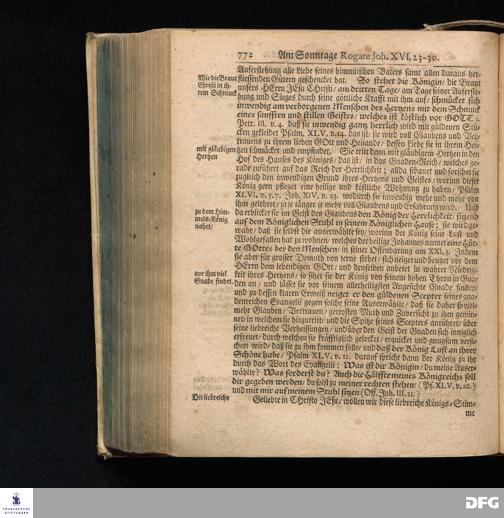 772 Am Sonntage Rogate Joh. XVI, 23-30.
Auferstehung alle Liebe seines himmlischen Vaters samt allen daraus her-
fliessenden Gütern geschencket hat. So stehet die Königin / die Braut
unsers HErrn JEsu Christi / am dritten Tage / am Tage seiner Auferste-
hung und Sieges durch seine göttliche Krafft mit ihm auf / schmücket sich
inwendig am verborgenen Menschen des Hertzens mit dem Schmuck
eines sanfften und stillen Geistes / welches ist köstlich vor GOTT 1.
Petr. III. v. 4. daß sie inwendig gantz herrlich wird mit güldenen Stü-
cken gekleidet Psalm. XLV. v. 14. das ist: sie wird voll Glaubens und Ver-
trauens zu ihrem lieben GOtt und Heilande / dessen Liebe sie in ihrem Her-
tzen schmäcket und empfindet. Sie tritt denn mit gläubigem Hertzen in den
Hof des Hauses des Königes / das ist / in das Gnaden-Reich / welches ge-
rade zuführet auf das Reich der Herrlichkeit; allda schauet und forschet sie
zugleich den inwendigen Grund ihres Hertzens und Geistes / worinn dieser
König gern pfleget eine heilige und köstliche Wohnung zu haben / Psalm
XLVI. v. 5. 7. Joh. XIV. v. 23. wodurch sie inwendig mehr und mehr von
ihm gelehret / ja je länger je mehr voll Glaubens und Erfahrung wird. Und
da erblicket sie im Geist des Glaubens den König der Herrlichkeit / sitzend
auf dem Königlichen Stuhl in seinem Königlichen Hause; sie wird ge-
wahr / daß sie selbst die auserwählte sey / worinn der König seine Lust und
Wohlgefallen hat zu wohnen / welches der heilige Johannes nennet eine Hüt-
te GOttes bey den Menschen / in seiner Offenbarung am XXI, 3. Indem
sie aber für grosser Demuth von ferne stehet / sich neiget und beuget vor dem
HErrn dem lebendigen GOtt / und denselben anbetet in wahrer Niedrig-
keit ihres Hertzens / so siehet sie der König von seinem hohen Thron in Gna-
den an / und lässet sie vor seinem allerheiligsten Angesichte Gnade finden /
und zu dessen klaren Erweiß neiget er den güldenen Scepter seines gna-
denreichen Evangelii gegen solche seine Auserwählte / daß sie daher so viel-
mehr Glauben / Vertrauen / getrosten Muth und Zuversicht zu ihm gewin-
net / in welchem sie hinzutritt / und die Spitze seines Scepters anrühret / über
seine liebreiche Verheissungen / und über den Geist der Gnaden sich inniglich
erfreuet / durch welchen sie kräfftiglich gelocket / erquicket und gnugsam versi-
chert wird / daß sie zu ihm kommen solle / und daß der König Lust an ihrer
Schöne habe / Psalm XLV. v. 12. Darauf spricht dann der König zu ihr
durch das Wort des Evangelii: Was ist dir Königin / du meine Auser-
wählte? Was forderst du? Auch die Hälffte meines Königreichs soll
dir gegeben werden / du solst zu meiner rechten stehen / (Ps. XLV, v. 10.)
und mit mir auf meinem Stuhl sitzen (Off. Joh. III. 21.)
Geliebte in Christo JEsu / wollen wir diese liebreiche Königs-Stim-
me
Wie die Braut
Christi in ih-
rem Schmuck
mit gläubigen
Hertzen
zu dem Him-
mels-König
nahet /
vor ihm viel
Gnade findet.
Die liebreiche
FRANCKESCHE
STIFTUNGEN
DFG